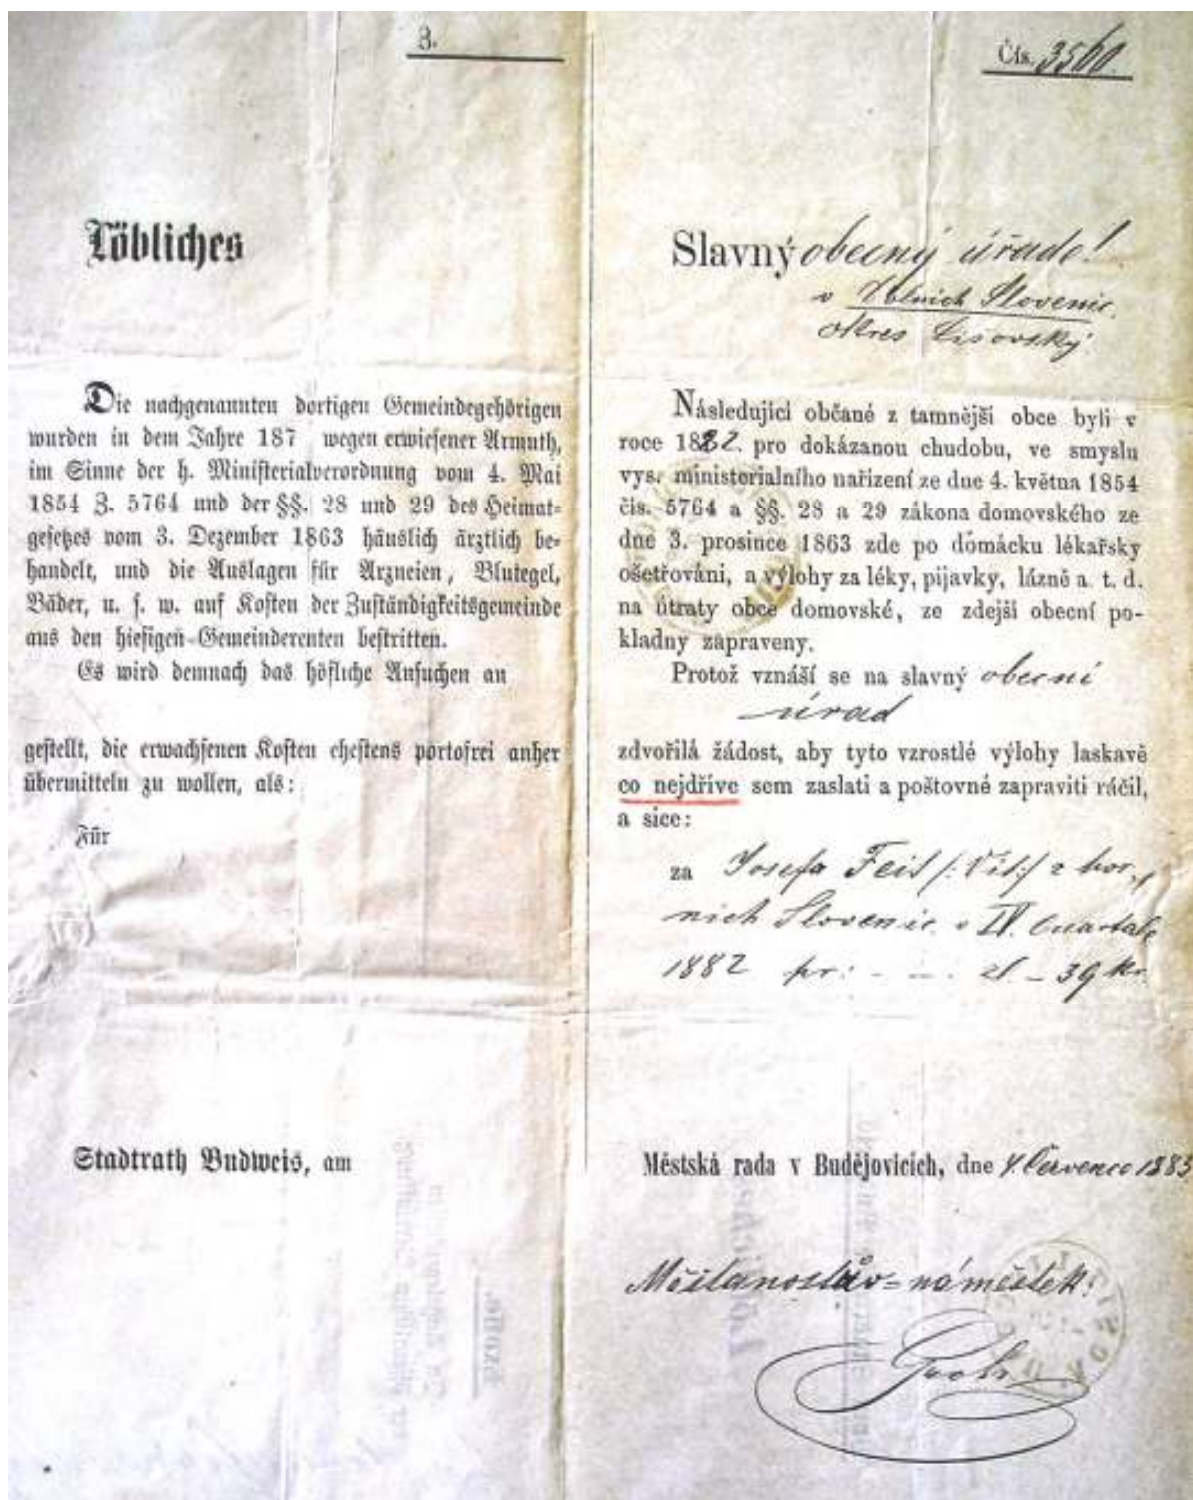 3.
Löbliches
Die nachgenannten dortigen Gemeindegehörigen
wurden in dem Jahre 187 wegen erwiesener Armuth,
im Sinne der h. Ministerialverordnung vom 4. Mai
1854 Z. 5764 und der §§. 28 und 29 des Heimat-
gesetzes vom 3. Dezember 1863 häuslich ärztlich be-
handelt, und die Auslagen für Arzneien, Blutegel,
Bäder, u. s. w. auf Kosten der Zuständigkeitsgemeinde
aus den hiesigen Gemeinderenten bestritten.
Es wird demnach das höfliche Ansuchen an
gestellt, die erwachsenen Kosten ehestens portofrei anher
übermitteln zu wollen, als:
Für
Stadtrath Budweis, am
Čís. 3560
Slavný obecný úřade!
v Dolních Slovenic.
okres Lišovský
Následující občané z tamnější obce byli v
roce 1882. pro dokázanou chudobu, ve smyslu
vys. ministerialního nařízení ze dne 4. května 1854
čís. 5764 a §§. 28 a 29 zákona domovského ze
dne 3. prosince 1863 zde po domácku lékařsky
ošetřováni, a výlohy za léky, pijavky, lázně a. t. d.
na útraty obce domovské, ze zdejší obecní po-
kladny zapraveny.
Protož vznáší se na slavný obecní
úřad
zdvořilá žádost, aby tyto vzrostlé výlohy laskavě
co nejdříve sem zaslati a poštovné zapraviti ráčil,
a sice:
za Josefa Feit /: Vít :/ z hor-
ních Slovenic v IV. Quartale
1882 pr: - - . zl - 39 kr.
Městská rada v Budějovicích, dne 4. Července 1883
Měšťanostův = náměstek: